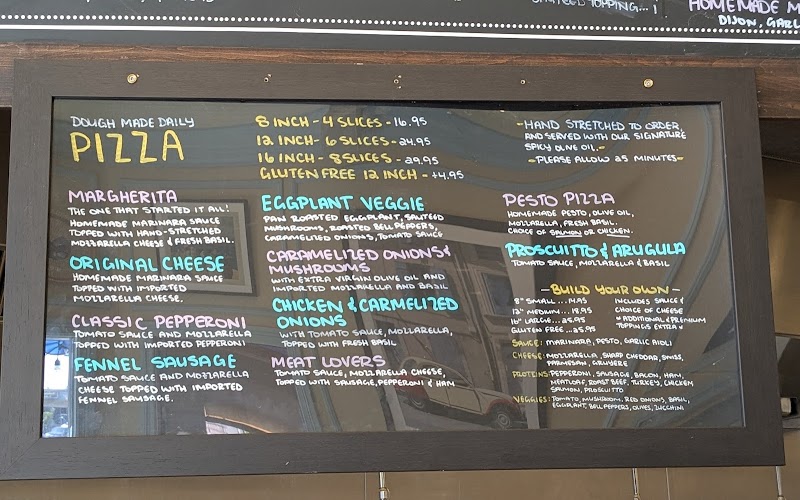 HOMEMADE M
DIJON, GARL
DOUGH MADE DAILY
PIZZA
8 INCH - 4 SLICES - 16.95
12 INCH - 6 SLICES - 24.95
16 INCH - 8 SLICES - 29.95
GLUTEN FREE 12 INCH - +4.95
-HAND STRETCHED TO ORDER
AND SERVED WITH OUR SIGNATURE
SPICY OLIVE OIL.-
-PLEASE ALLOW 25 MINUTES-
MARGHERITA
THE ONE THAT STARTED IT ALL!
HOMEMADE MARINARA SAUCE
TOPPED WITH HAND-STRETCHED
MOZZARELLA CHEESE & FRESH BASIL.
ORIGINAL CHEESE
HOMEMADE MARINARA SAUCE
TOPPED WITH IMPORTED
MOZZARELLA CHEESE.
CLASSIC PEPPERONI
TOMATO SAUCE AND MOZZARELLA
TOPPED WITH IMPORTED PEPPERONI
FENNEL SAUSAGE
TOMATO SAUCE AND MOZZARELLA
CHEESE TOPPED WITH IMPORTED
FENNEL SAUSAGE.
EGGPLANT VEGGIE
PAN ROASTED EGGPLANT, SAUTEED
MUSHROOMS, ROASTED BELL PEPPERS,
CARAMELIZED ONIONS, TOMATO SAUCE
CARAMELIZED ONIONS &
MUSHROOMS
WITH EXTRA VIRGIN OLIVE OIL AND
IMPORTED MOZZARELLA AND BASIL
CHICKEN & CARMELIZED
ONIONS
WITH TOMATO SAUCE, MOZZARELLA,
TOPPED WITH FRESH BASIL
MEAT LOVERS
TOMATO SAUCE, MOZZARELLA CHEESE,
TOPPED WITH SAUSAGE, PEPPERONI & HAM
PESTO PIZZA
HOMEMADE PESTO, OLIVE OIL,
MOZZARELLA, FRESH BASIL
CHOICE OF SALMON OR CHICKEN.
PROSCUITTO & ARUGULA
TOMATO SAUCE, MOZZARELLA & BASIL
-BUILD YOUR OWN-
8" SMALL... 14.95
12" MEDIUM... 19.95
16" LARGE... 25.95
GLUTEN FREE... 25.95
INCLUDES SAUCE &
CHOICE OF CHEESE
* ADDITIONAL & PREMIUM
TOPPINGS EXTRA *
SAUCE: MARINARA, PESTO, GARLIC AIOLI
CHEESE: MOZZARELLA, SHARP CHEDDAR, SWISS,
PARMESAN, GRUYERE
PROTEINS: PEPPERONI, SAUSAGE, BACON, HAM,
MEATLOAF, ROAST BEEF, TURKEY, CHICKEN
SALMON, PROSCUITTO
VEGGIES: TOMATO, MUSHROOM, RED ONIONS, BASIL,
EGGPLANT, BELL PEPPERS, OLIVES, ZUCCHINI